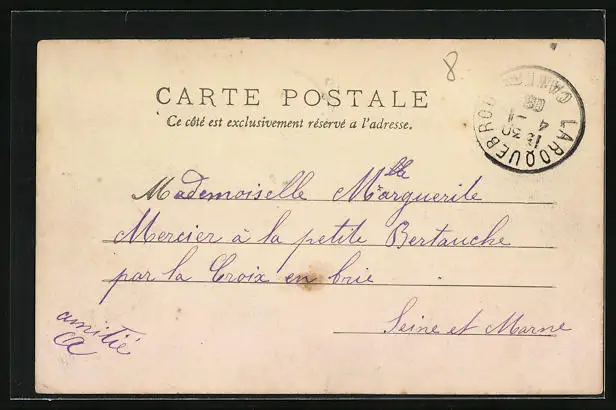 8
CARTE POSTALE
Ce côté est exclusivement réservé a l'adresse.
LAROQUEBROU
CANTAL
13 30
4 - 1
03
Mademoiselle Mlle Marguerite
Mercier à la petite Bertauche
par la Croix en brie
Seine et Marne
amitié